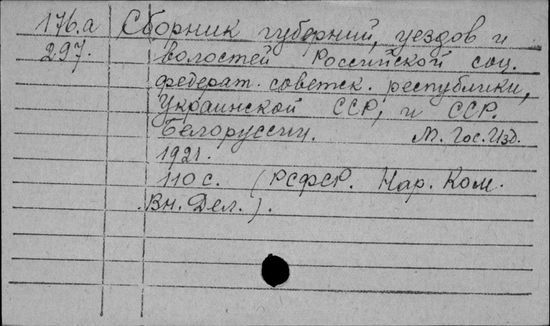 176.а Сборник губерний, уездов и
297. волостей Российской соц.
федерат. советск. республики,
Украинской ССР, и ССР.
Белоруссии. М. Гос. Изд.
1921.
110 с. (РСФСР. Нар. Ком.
Вн. Дел.).